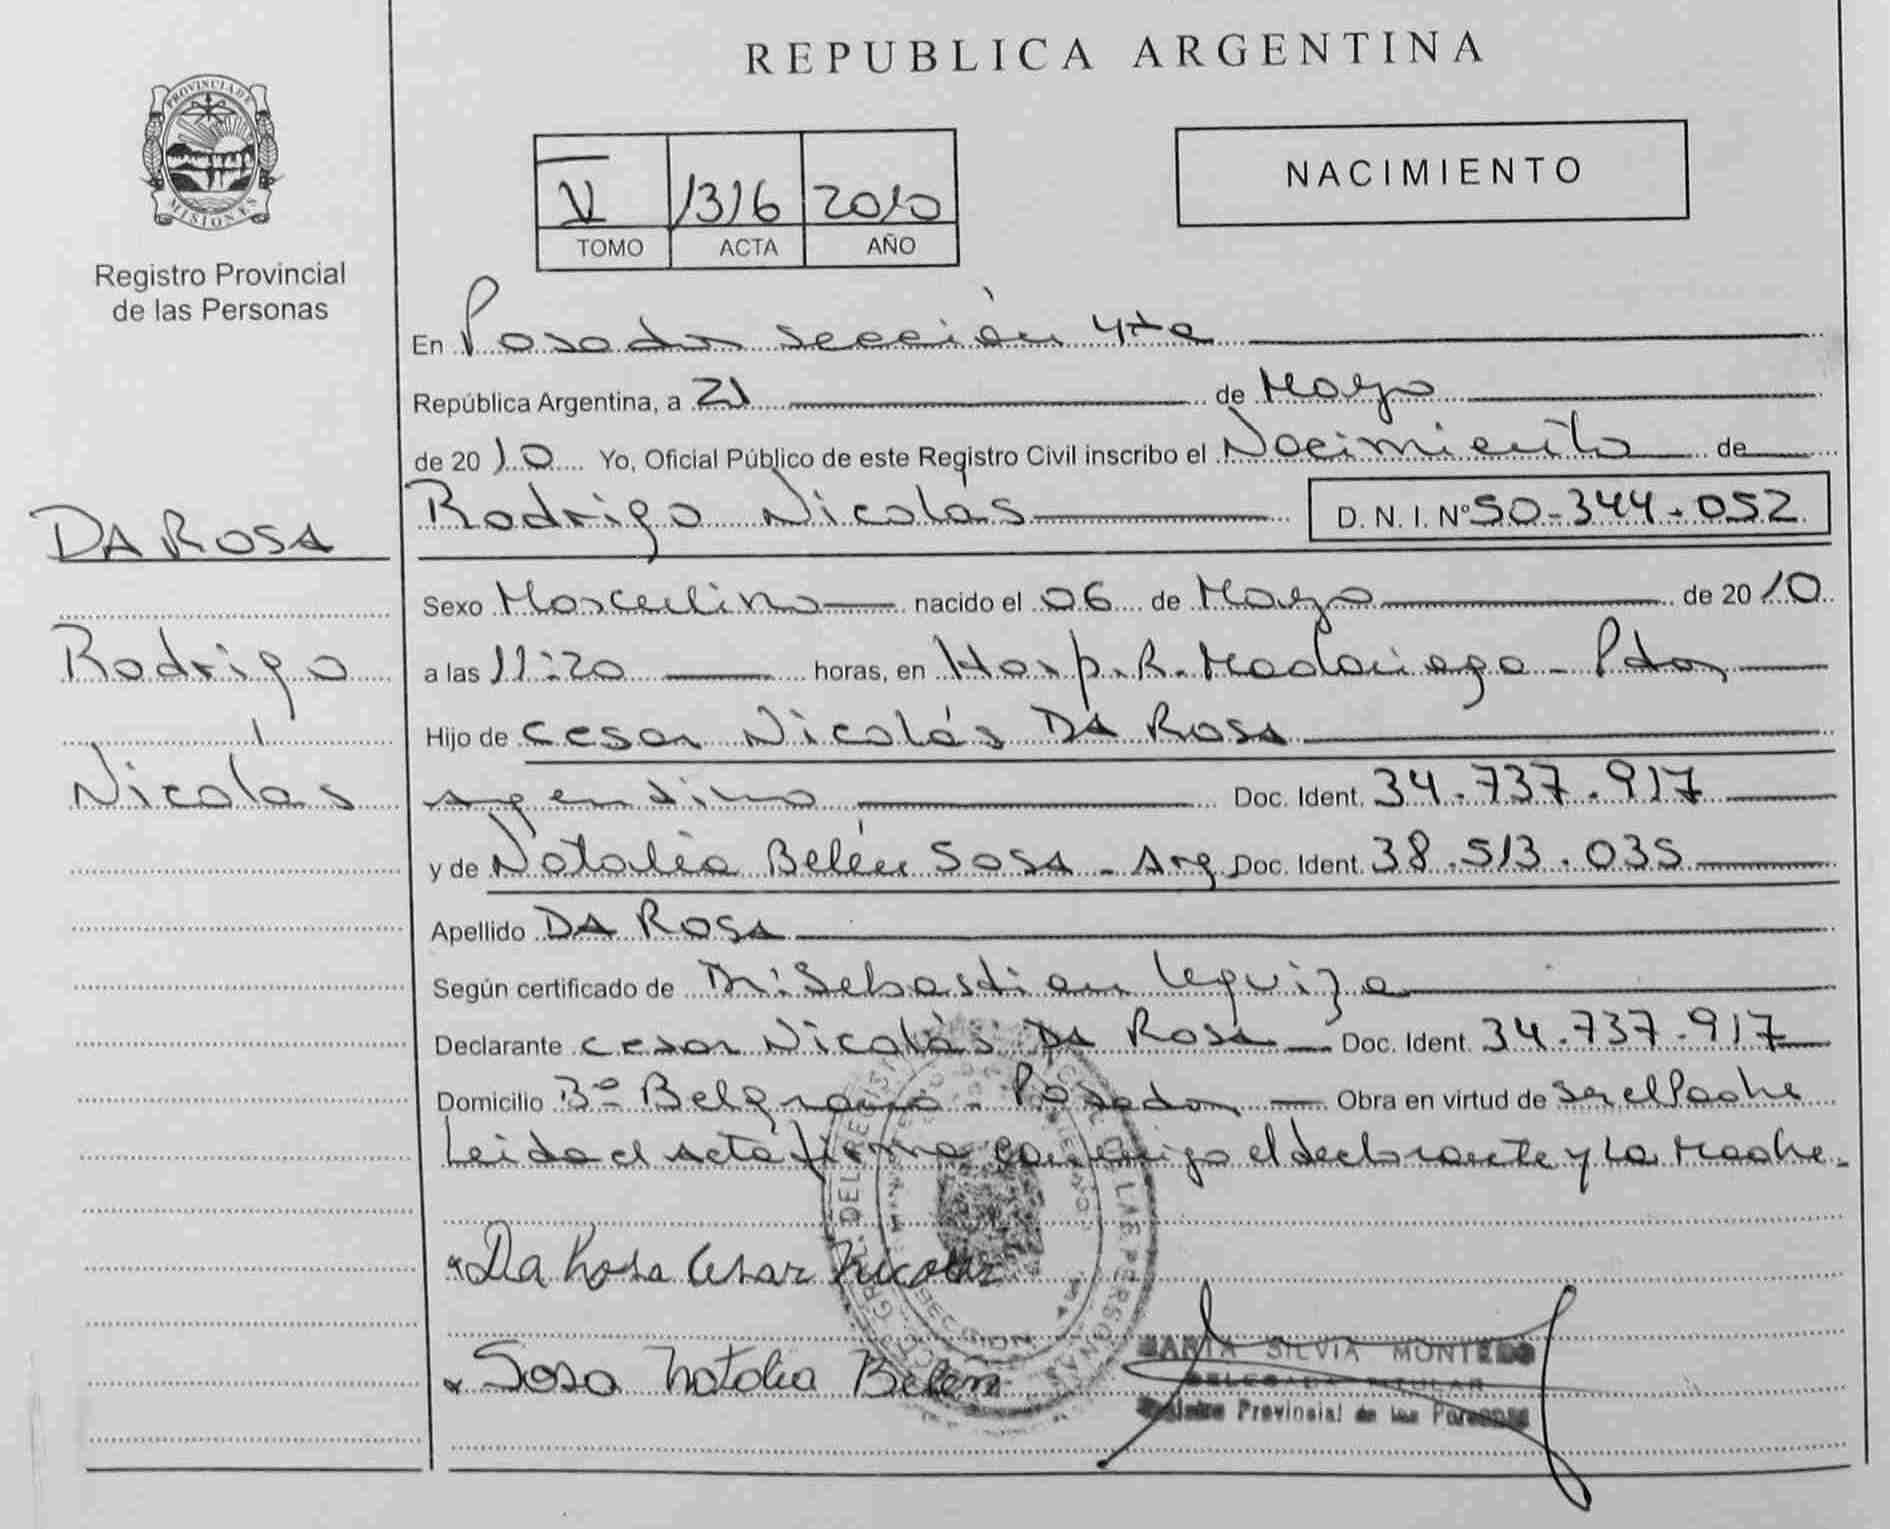 REPUBLICA ARGENTINA
PROVINCIA DE
MISIONES
Registro Provincial
de las Personas
V 1316 2010
TOMO ACTA AÑO
NACIMIENTO
En Posadas sección 4ta
República Argentina, a 21 de Mayo
de 2010 Yo, Oficial Público de este Registro Civil inscribo el Nacimiento de
Rodrigo Nicolás D. N. I. Nº 50-344-052
DA ROSA
Rodrigo
Nicolás
Sexo Masculino nacido el 06 de Mayo de 2010
a las 11:20 horas, en Hosp. R. Madariaga - Pdas
Hijo de Cesar Nicolás DA ROSA
Argentino Doc. Ident. 34.737.917
y de Natalia Belén SOSA - Arg Doc. Ident. 38.513.035
Apellido DA ROSA
Según certificado de Dr: Sebastian Leguiza
Declarante Cesar Nicolás DA ROSA Doc. Ident. 34.737.917
Domicilio Bº Belgrano - Posadas Obra en virtud de ser el Padre
Leida el acta firma conmigo el declarante y La Madre.
Da Rosa Cesar Nicolas
Sosa Natalia Belen
MARIA SILVIA MONTERO
DELEGADA TITULAR
Registro Provincial de las Personas